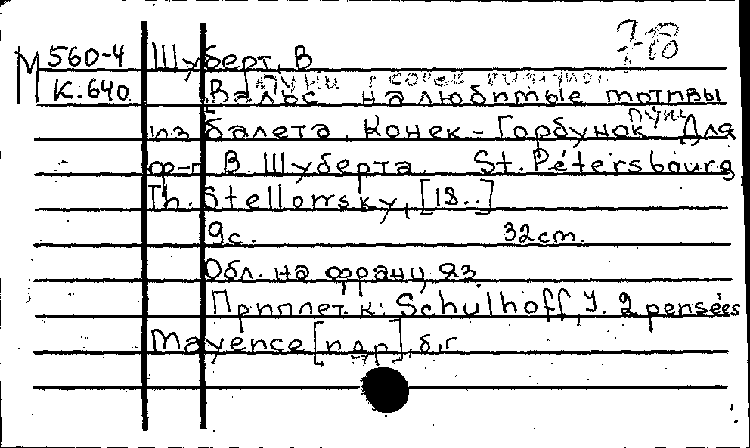 78
М 560-4 Шуберт, В
К.640 Вальс на любимые мотивы
Пуни
из балета. Конек-Горбунок Для
ф-п. В. Шуберта. St. Pétersbourg,
Th. Stellowsky, [18..]
9с. 32cm.
Обл. на франц. яз.
Приплет. к: Schulhoff, J. 2 pensées
Mayence [и др], б.г.